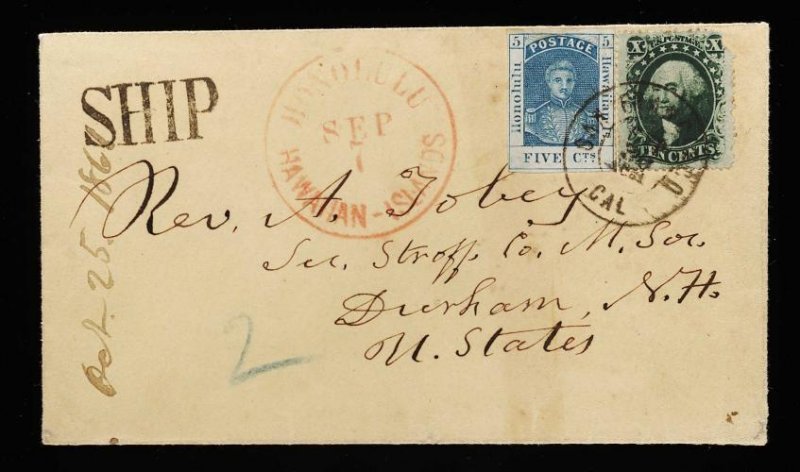 SHIP
HONOLULU
SEP
7
HAWAIIAN-ISLANDS
5 POSTAGE 5
Honolulu
Hawaiian Is.
FIVE Cts.
U.S. POSTAGE
X X
TEN CENTS
SAN
CAL
Rev. A. Tobey
Sec. Straff. Co. M. Soc.
Durham, N.H.
U. States
2
Oct. 25.